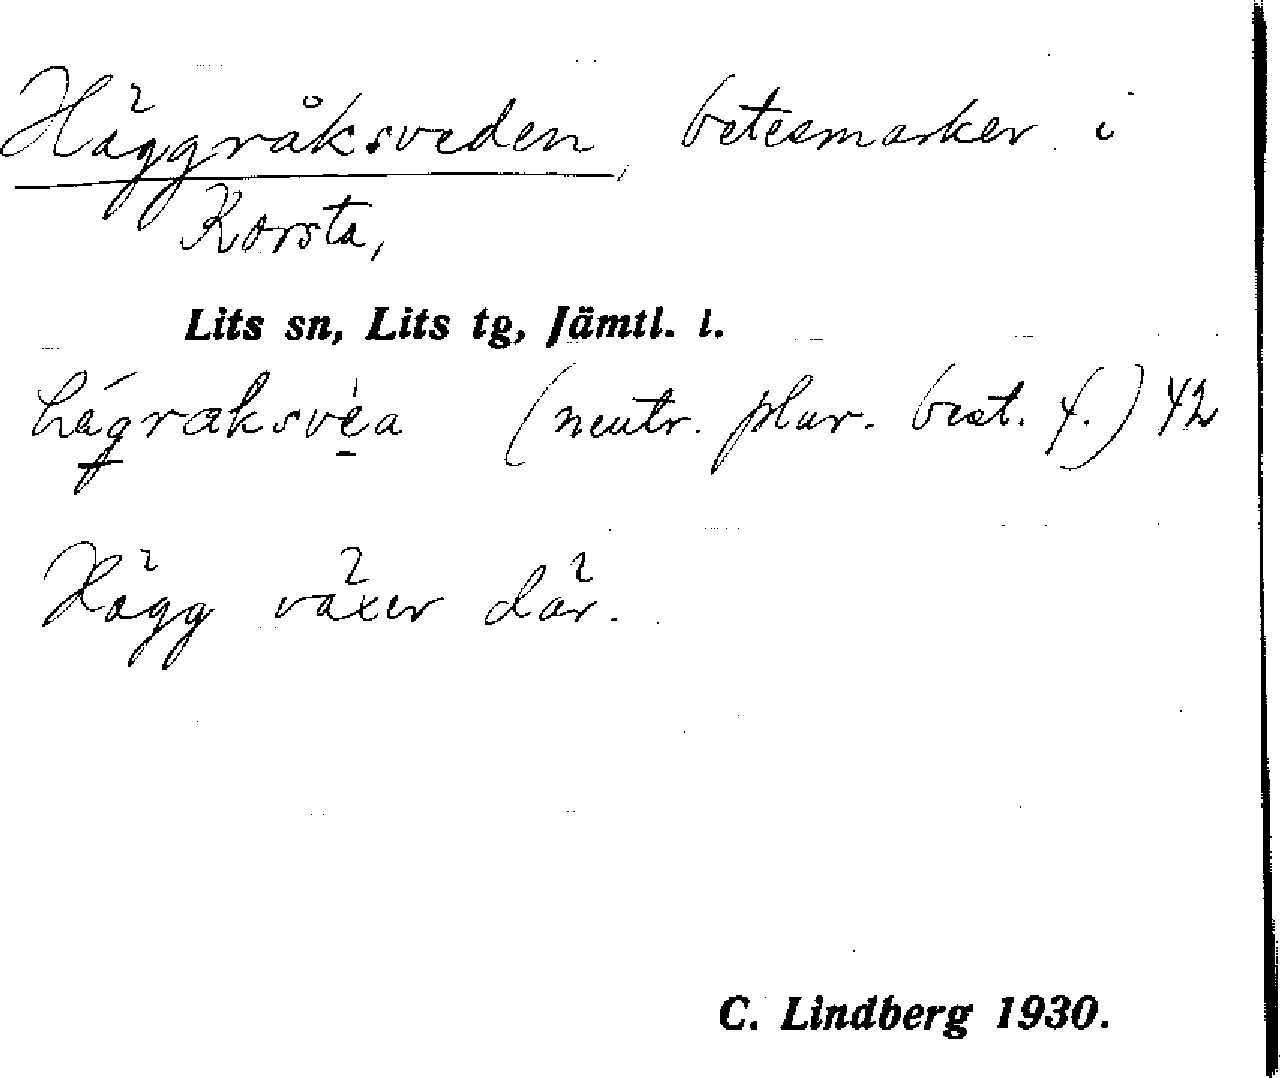 Häggråksveden, betesmarker i
Korsta,
Lits sn, Lits tg, Jämtl. l.
hágraksvèa (neutr. plur. best. f.) 42
Hägg växer där.
C. Lindberg 1930.